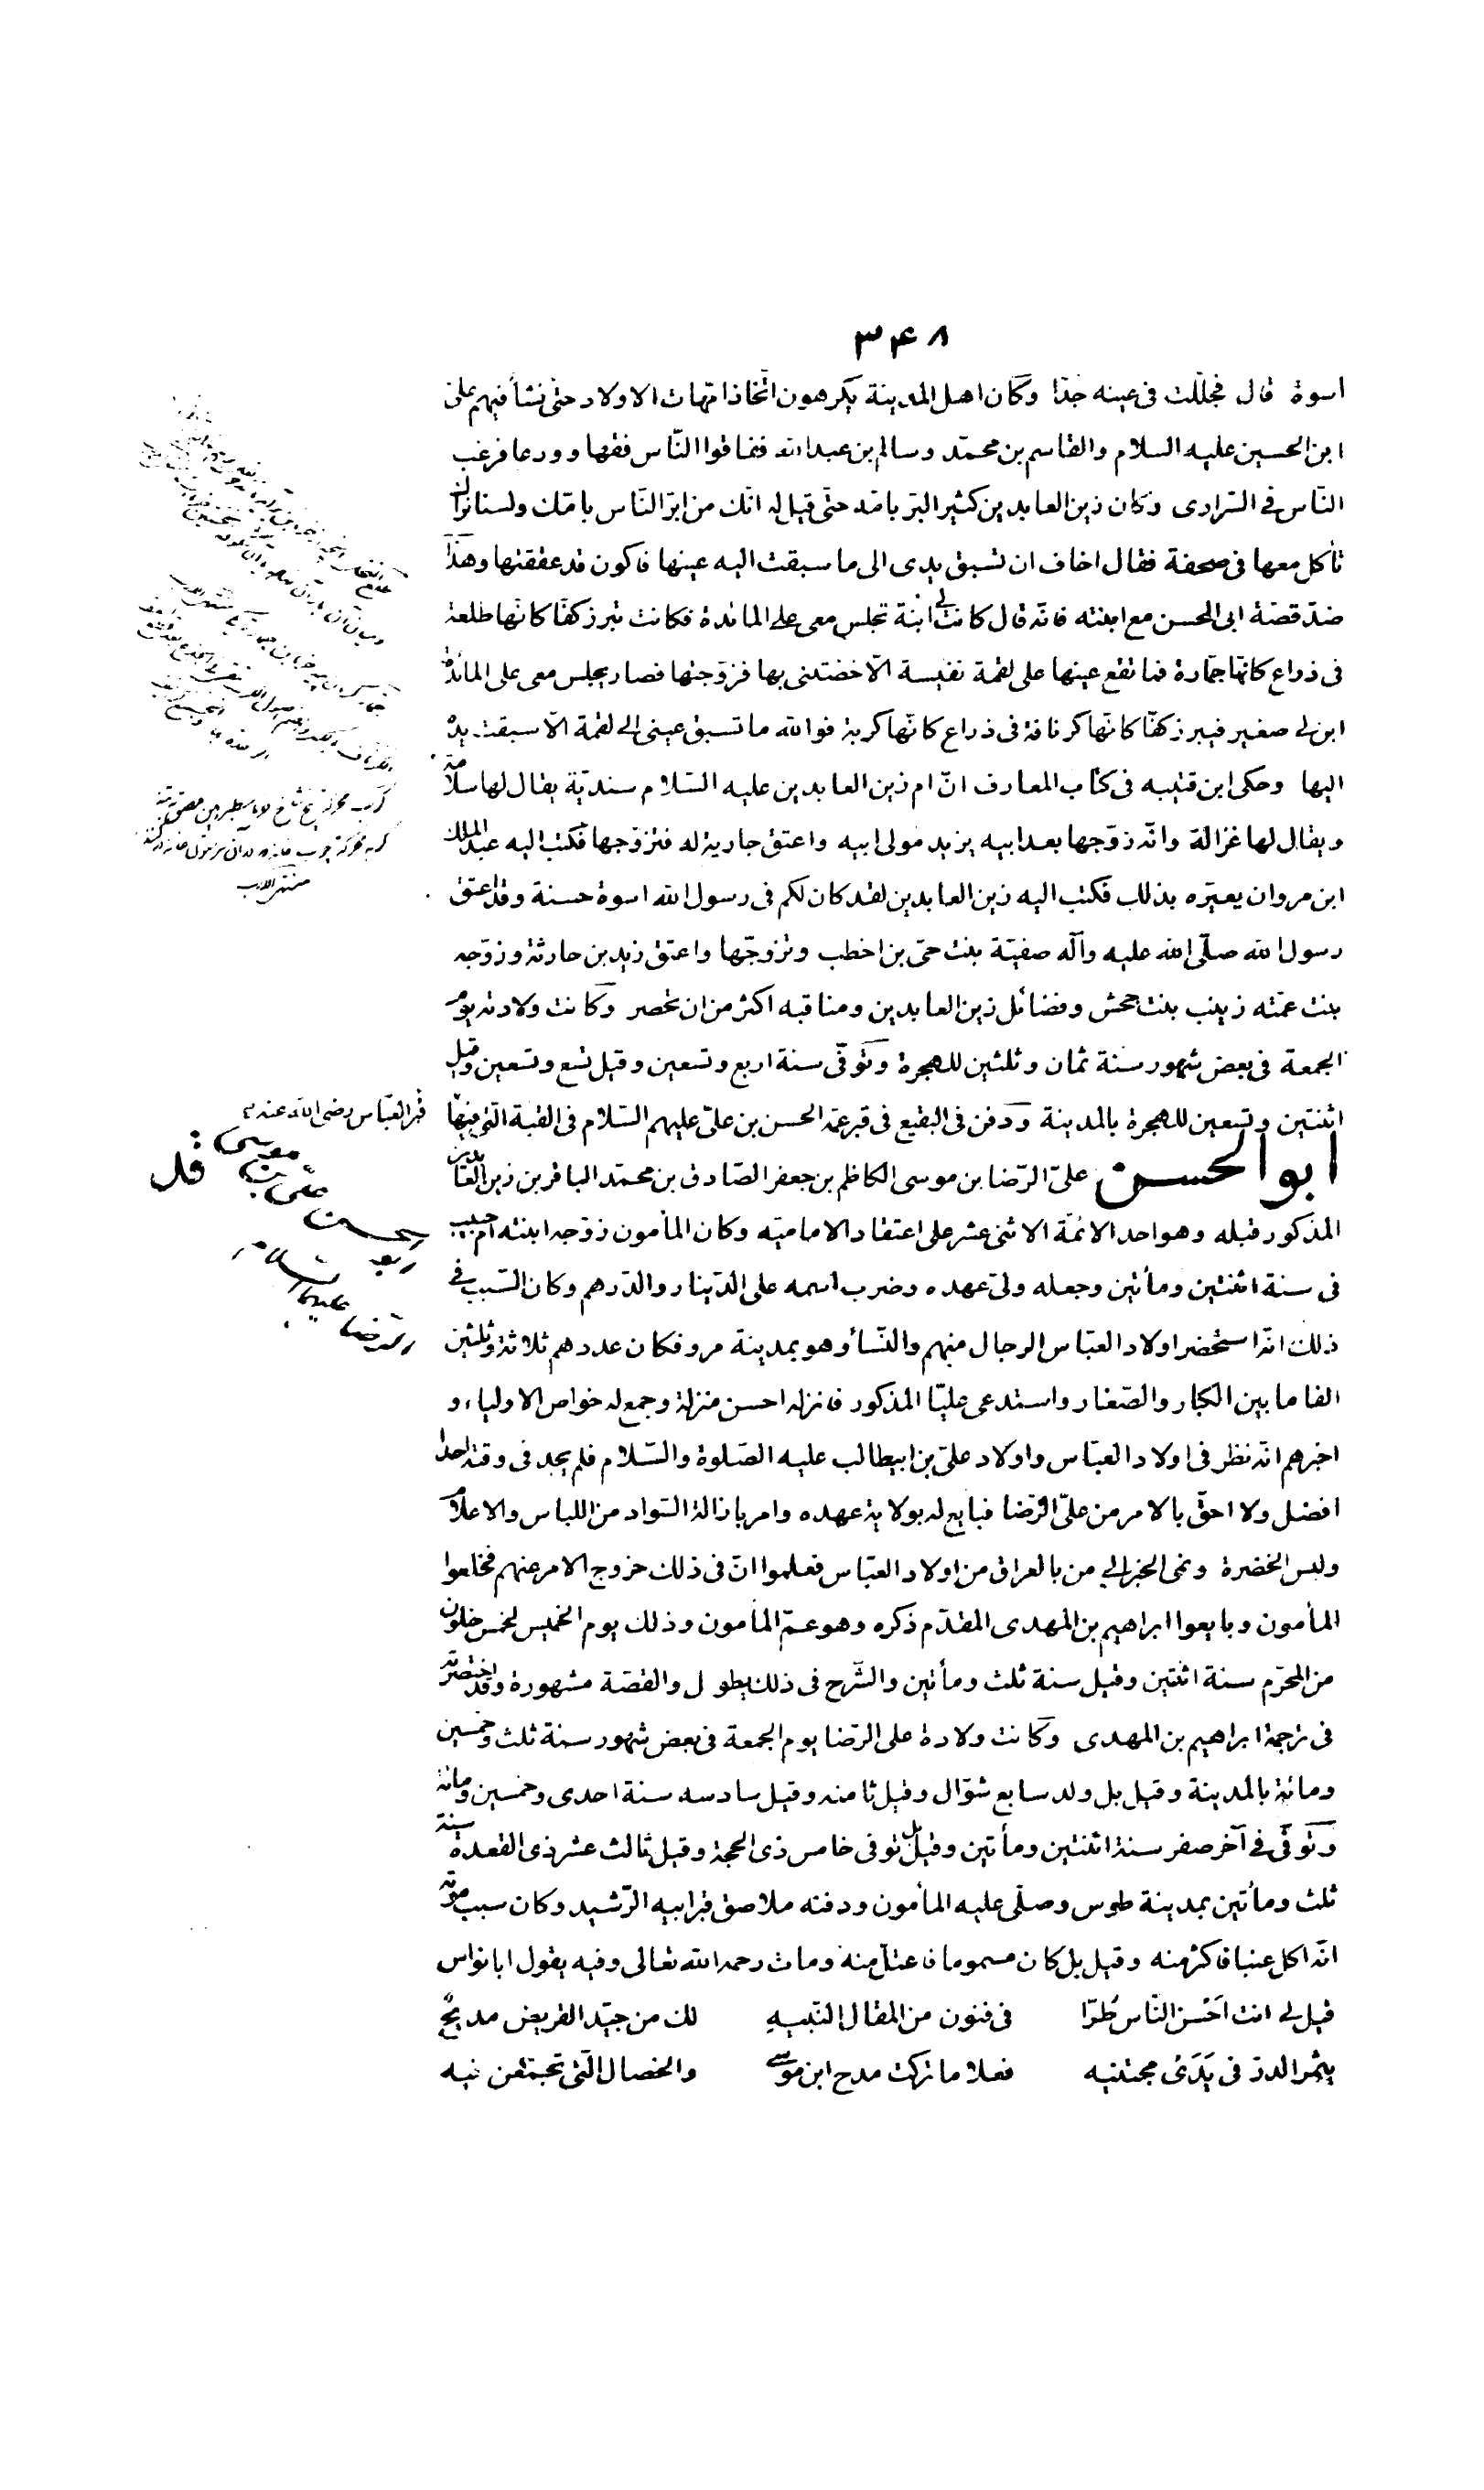 ۳۴۸
اسوة قال فجلّلت فى عينه جدّا وكان اهل المدينة يكرهون اتّخاذ امّهات الاولاد حتّى نشأ فيهم علىّ
ابن الحسين عليه السلام والقاسم بن محمّد وسالم بن عبد الله ففاقوا النّاس فقها وورعا فرغب
النّاس فى السّرارى وكان زين العابدين كثير البرّ بامّه حتّى قيل له انّك من ابرّ النّاس بامّك ولسنا نراك
تأكل معها فى صحفة فقال اخاف ان تسبق يدى الى ما سبقت اليه عينها فاكون قد عققتها وهذا
ضدّ قصّة ابى الحسن مع ابنته فانّه قال كانت لى ابنة تجلس معى على المائدة فكانت تبرز كفّا كانّها طلعة
فى ذراع كانّها جمّارة فما تقع عينها على لقمة نفيسة الّا خصّتنى بها فزوّجتها فصار يجلس معى على المائدة
ابن لى صغير فيبرز كفّا كانّها كرنافة فى ذراع كانّها كربة فوالله ما تسبق عينى الى لقمة الّا سبقت يده
اليها وحكى ابن قتيبه فى كتاب المعارف انّ ام زين العابدين عليه السّلام سنديّة يقال لها سلامة
ويقال لها غزالة وانّه زوّجها بعد ابيه بزبيد مولى ابيه واعتق جارية له فتزوّجها فكتب اليه عبد الملك
ابن مروان يعيّره بذلك فكتب اليه زين العابدين لقد كان لكم فى رسول الله اسوة حسنة وقد اعتق
رسول الله صلّى الله عليه وآله صفيّة بنت حىّ بن اخطب وتزوجّها واعتق زيد بن حارثة وزوّجه
بنت عمّته زينب بنت جحش وفضائل زين العابدين ومناقبه اكثر من ان تحصر وكانت ولادته يوم
الجمعة فى بعض شهور سنة ثمان وثلثين للهجرة وتوفّى سنة اربع وتسعين وقيل تسع وتسعين وقيل
اثنتين وتسعين للهجرة بالمدينة ودفن فى البقيع فى قبر عمّه الحسن بن علىّ عليهم السّلام فى القبة الّتى فيها
قبر العبّاس رضى الله عنه
ابو الحسن علىّ الرّضا بن موسى الكاظم بن جعفر الصّادق بن محمّد الباقر بن زين العابدين
ابو الحسن علىّ بن موسى
الرّضا عليهما السّلام
المذكور قبله وهو احد الائمّة الاثنى عشر على اعتقاد الاماميّه وكان المأمون زوّجه ابنته ام حبيب
فى سنة اثنتين ومأتين وجعله ولىّ عهده وضرب اسمه على الدّينار والدّرهم وكان السّبب فى
ذلك انّه استحضر اولاد العبّاس الرجال منهم والنّسأ وهو بمدينة مرو فكان عددهم ثلاثة وثلثين
الفا ما بين الكبار والصّغار واستدعى عليّا المذكور فانزله احسن منزلة وجمع له خواص الاولياء و
اخبرهم انّه نظر فى اولاد العبّاس واولاد علىّ بن ابيطالب عليه الصّلوة والسّلام فلم يجد فى وقته احدا
افضل ولا احقّ بالامر من علىّ الرّضا فبايع له بولاية عهده وامر بازالة السّواد من اللباس والاعلام
ولبس الخضرة ونمى الخبر الى من بالعراق من اولاد العبّاس فعلموا انّ فى ذلك خروج الامر عنهم فخلعوا
المأمون وبايعوا ابراهيم بن المهدى المقدّم ذكره وهو عمّ المأمون وذلك يوم الخميس لخمس خلون
من المحرّم سنة اثنتين وقيل سنة ثلث ومأتين والشّرح فى ذلك يطول والقصّة مشهورة وقد اختصرته
فى ترجمة ابراهيم بن المهدى وكانت ولادة على الرّضا يوم الجمعة فى بعض شهور سنة ثلث وخمسين
ومائة بالمدينة وقيل بل ولد سابع شوّال وقيل ثامنه وقيل سادسه سنة احدى وخمسين ومائة
وتوفّى فى آخر صفر سنة اثنتين ومأتين وقيل بل توفى خامس ذى الحجة وقيل ثالث عشر ذى القعدة سنة
ثلث ومأتين بمدينة طوس وصلّى عليه المأمون ودفنه ملاصق قبر ابيه الرّشيد وكان سبب موته
انّه اكل عنبا فاكثر منه وقيل بل كان مسموما فاعتلّ منه ومات رحمه الله تعالى وفيه يقول ابا نواس
قيل لى انت اَحْسن النّاس طُرّا فى فنون من المقال النّبيهِ لك من جيّد القريض مديحٌ
يثمر الدرّ فى يَدَىْ مجتنيه فعلا ما تركت مدح ابن موسى والخصال الّتى تجمّعن فيه